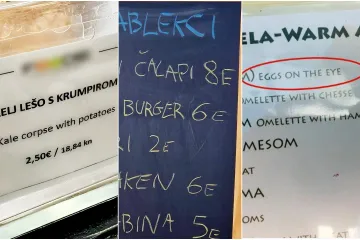 ELJ LEŠO S KRUMPIROM
Kale corpse with potatoes
2,50€ / 18,84 kn
ABLEKCI
ČALAPI 8E
BURGER 6E
2E
KEN 6E
BINA 5E
ELA-WARM
EGGS ON THE EYE
OMELETTE WITH CHESSE
OMELETTE WITH HAM
MESOM